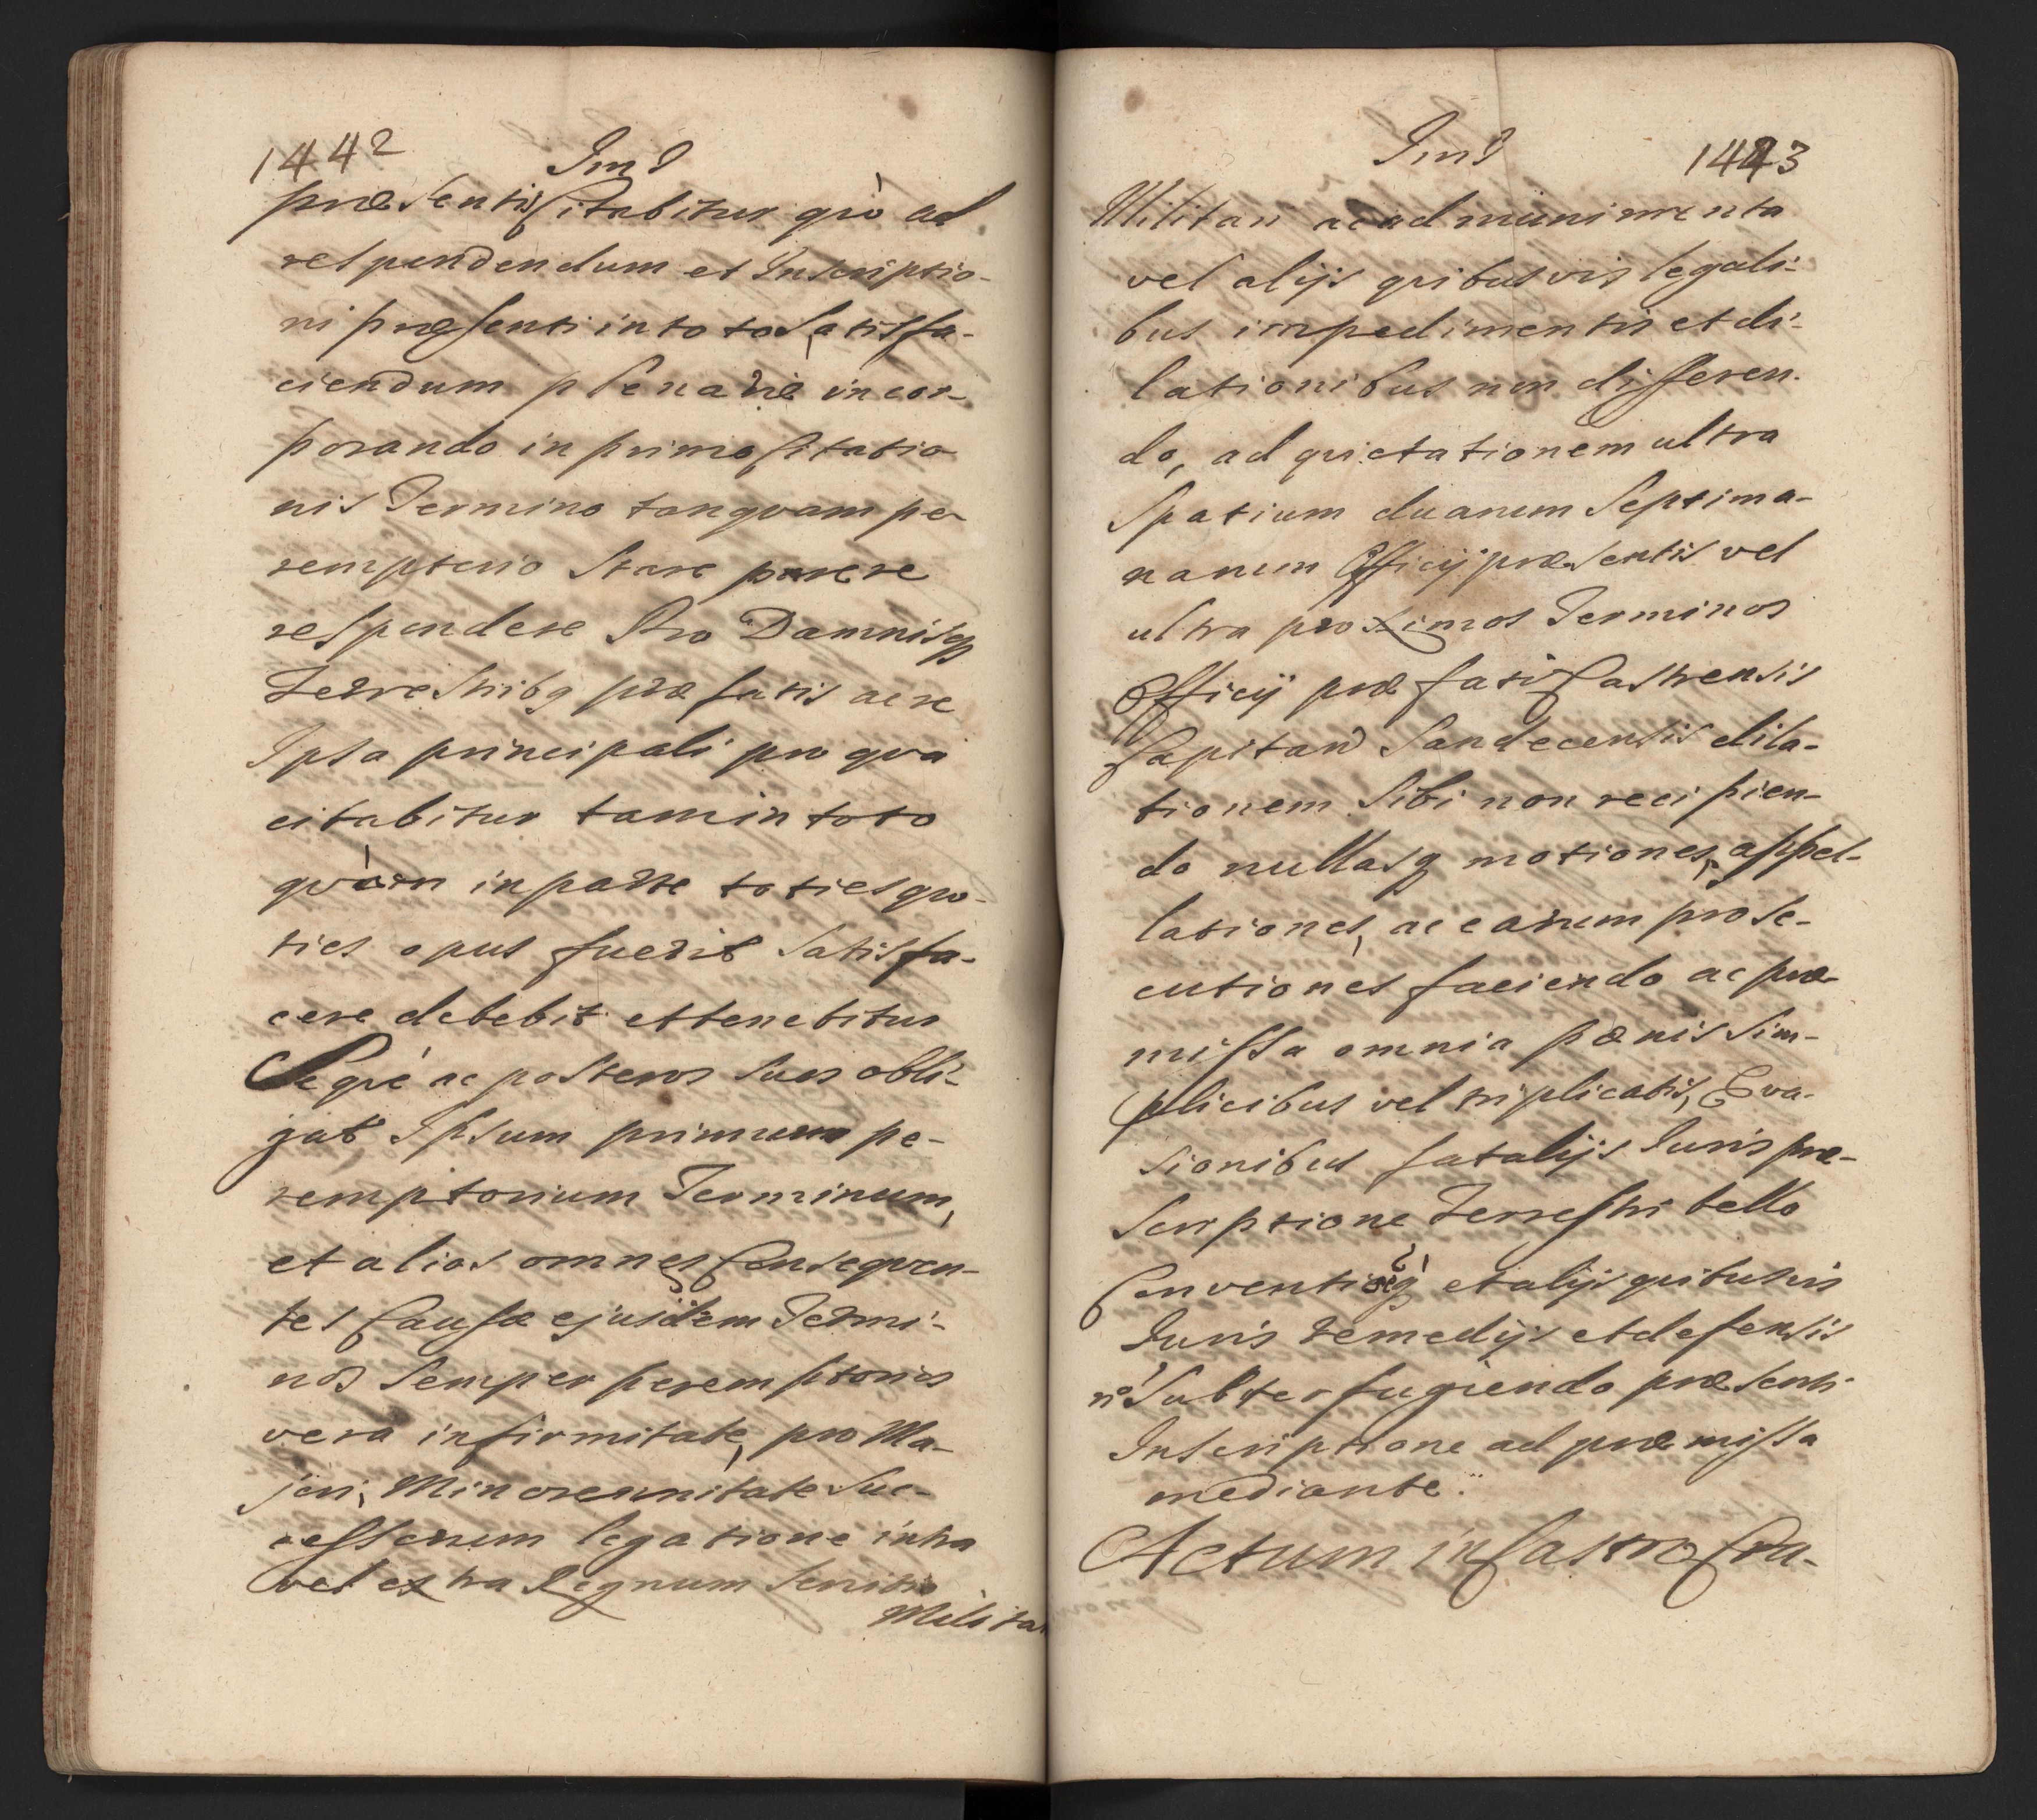 1442
præsentis Citabitur qvò ad
respondendum et Inscriptio-
ni præsenti in toto satisfa-
ciendum plenarie incor-
porando in primo Citatio
nis Termino tanqvam pe
remptorio stare parere
respondere Pro Damnisq
Terrestribq præfatis ac re
Ipsa principali pro qva
citabitur tam in toto
qvàm in parte toties qvo-
ties opus fuerit satisfa-
cere debebit et tenebitur
Seqvè ac posteros suos obli-
gat Ipsum primum pe-
remptorium Terminum,
et alios omnes Conseqven-
tes Causæ ejusdem Termi-
nos semper peremptorios
vera infirmitate, pro Ma-
jori, Minorennitate Suc-
cessorum legatione intra
vel extra Regnum Servitio
Militari
1443
Militari ac ad munimenta
vel alijs qvibusvis legali-
bus impedimentis et di-
lationibus non differen-
do, ad qvietationem ultra
Spatium duarum Septima-
narum Officij præsentis vel
ultra proximos Terminos
Officij præfati Castrensis
Capitan Sandecensis dila-
tionem sibi non recipien-
do nullasq motiones, appel-
lationes, ac earum prose-
cutiones faciendo ac præ-
missa omnia pænis sim-
plicibus vel triplicatis, Eva-
sionibus fatalijs Juris præ-
scriptione Terrestri bello
et alijs qvibusvis
Juris remedijs et defensis
nō subterfugiendo præsenti
Inscriptione ad præmissa
mediante.
Actum in Castro Cra-